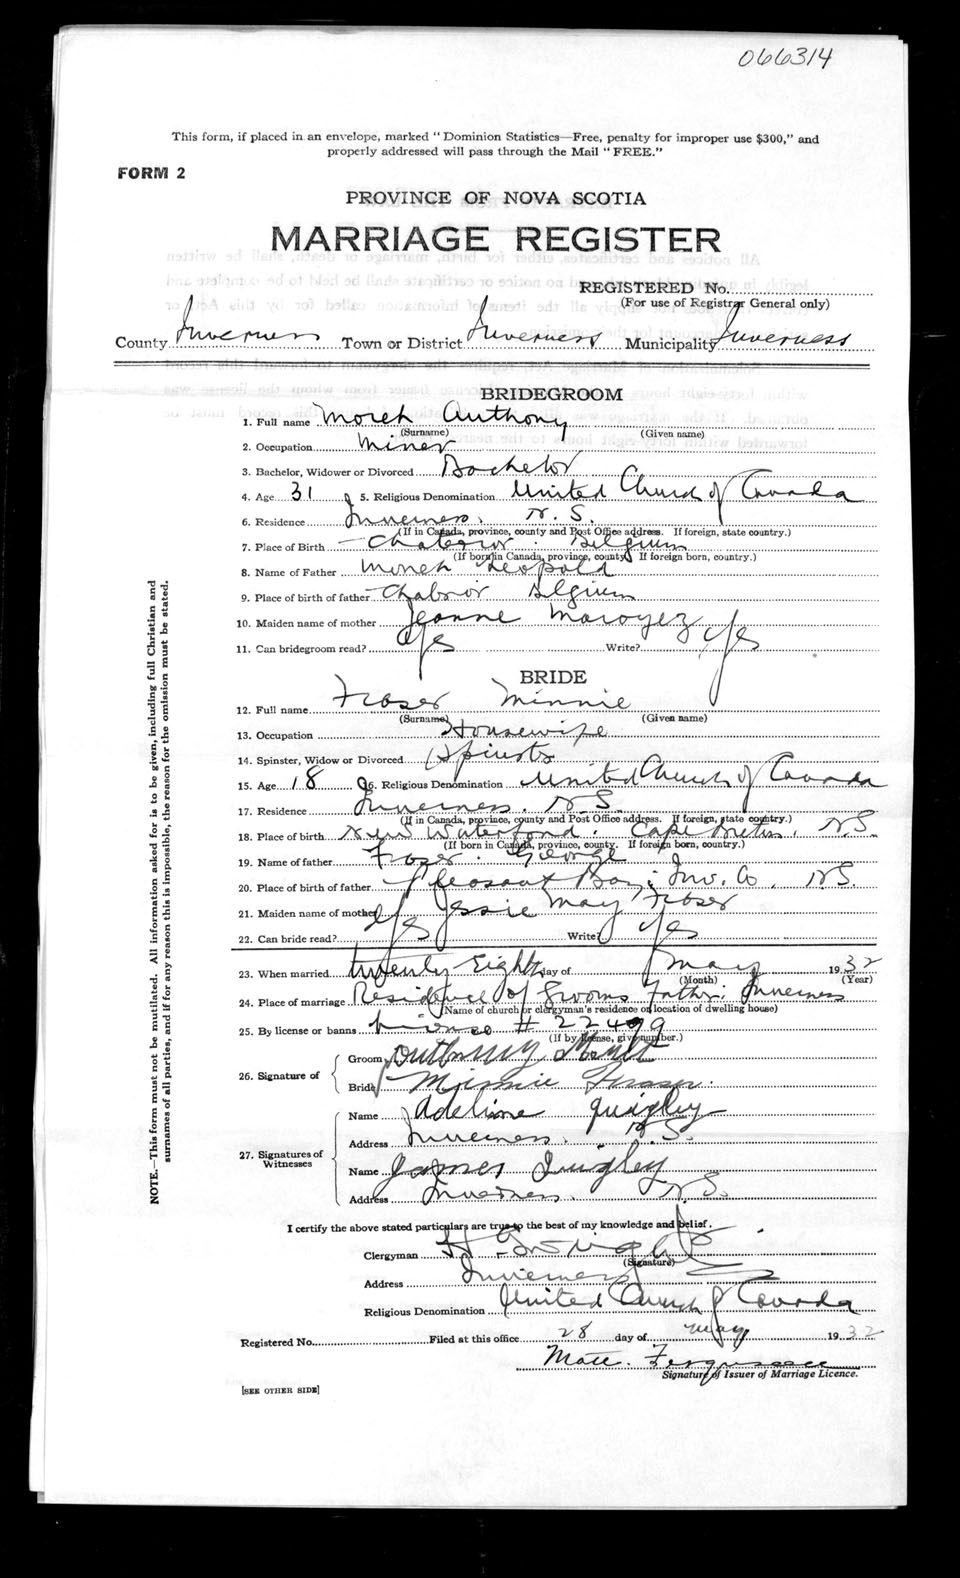 066314
This form, if placed in an envelope, marked "Dominion Statistics—Free, penalty for improper use $300," and
properly addressed will pass through the Mail "FREE."
FORM 2
PROVINCE OF NOVA SCOTIA
MARRIAGE REGISTER
REGISTERED No.
(For use of Registrar General only)
County Inverness Town or District Inverness Municipality Inverness
BRIDEGROOM
1. Full name Moreh Anthony
(Surname) (Given name)
2. Occupation Miner
3. Bachelor, Widower or Divorced Bachelor
4. Age 31 5. Religious Denomination United Church of Canada
6. Residence Inverness. N.S.
(If in Canada, province, county and Post Office address. If foreign, state country.)
7. Place of Birth Belgium
(If born in Canada, province, county. If foreign born, country.)
8. Name of Father Moreh Leopold
9. Place of birth of father Belgium
10. Maiden name of mother Jeanne Maroyez
11. Can bridegroom read? Yes Write? Yes
BRIDE
12. Full name Fraser Minnie
(Surname) (Given name)
13. Occupation Housewife
14. Spinster, Widow or Divorced Spinster
15. Age 18 16. Religious Denomination United Church of Canada
17. Residence Inverness. N.S.
(If in Canada, province, county and Post Office address. If foreign, state country.)
18. Place of birth New Waterford. Cape Breton. N.S.
(If born in Canada, province, county. If foreign born, country.)
19. Name of father Fraser. George
20. Place of birth of father Pleasant Bay, Inv. Co. N.S.
21. Maiden name of mother Jessie May Fraser
22. Can bride read? Yes Write? Yes
23. When married twenty Eighth day of May 1932
(Month) (Year)
24. Place of marriage Residence of Grooms Father, Inverness
(Name of church or clergyman's residence or location of dwelling house)
25. By license or banns License # 22499
(If by license, give number.)
26. Signature of
Groom Anthony
Bride Minnie Fraser.
27. Signatures of Witnesses
Name Adeline Quigley
Address Inverness. N.S.
Name James Quigley
Address Inverness. N.S.
I certify the above stated particulars are true to the best of my knowledge and belief.
Clergyman
(Signature)
Address Inverness
Religious Denomination United Church of Canada
Registered No. Filed at this office 28 day of May 1932
Matt. Ferguson
Signature of Issuer of Marriage Licence.
[SEE OTHER SIDE]
NOTE.—This form must not be mutilated. All information asked for is to be given, including full Christian and
surnames of all parties, and if for any reason this is impossible, the reason for the omission must be stated.